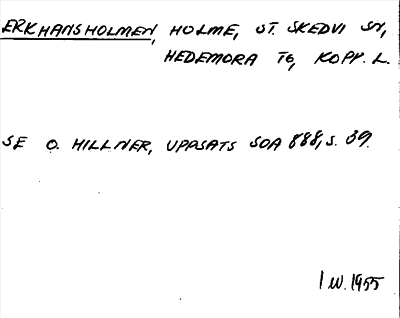 ERKHANSHOLMEN, HOLME, ST. SKEDVI SN,
HEDEMORA TG, KOPP. L.
SE O. HILLNER, UPPSATS SOA 888, S. 39.
1955